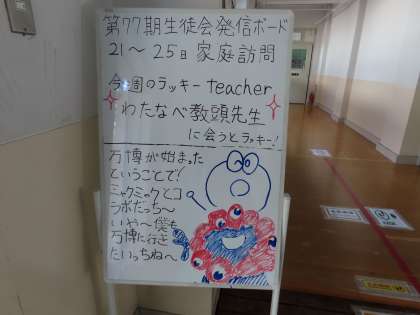 第77期生徒会発信ボード
21～25日家庭訪問
今週のラッキーteacher
わたなべ教頭先生
に会うとラッキー!
万博が始まった
ということで!
ミャクミャクとコ
ラボだっち～
いや～僕も
万博に行き
たいっちね～